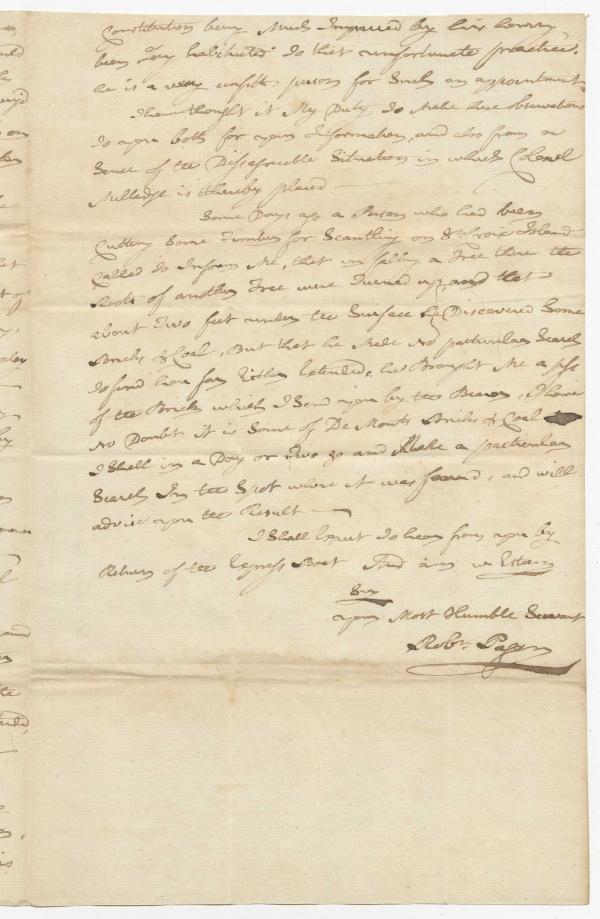 Constitution being Much Impaired by his having
been long habituated to that unfortunate practice.
he is a very unfitt person for Such an appointment
I have thought it My Duty to Make these observations
to you both for your Information, and also from a
Sence of the Disagreeable Situation in which Colonel
Milledge is thereby placed —
Some Days ago a Person who had been
Cutting Some Timber for Scantling on St Croix Island
Called to Inform Me, that in falling a Tree there the
Roots of another Tree were Turned up, and that
about Two feet under the Surface he Discovered Some
Bricks & Coal, But that he Made No particular Search
to find how far Either Extended, he Brought Me a
of the Brick which I Send you by the Bearer, I have
No Doubt it is Some of De Monts Bricks & Coal
I Shall in a Day or Two go and Make a particular
Search In the Spot where it was found, and will
advise you the Result —
I Shall Expect to hear from you by
Return of the Express Boat And am with Esteem
Sir
your Most Humble Servant
Robt. Pagan